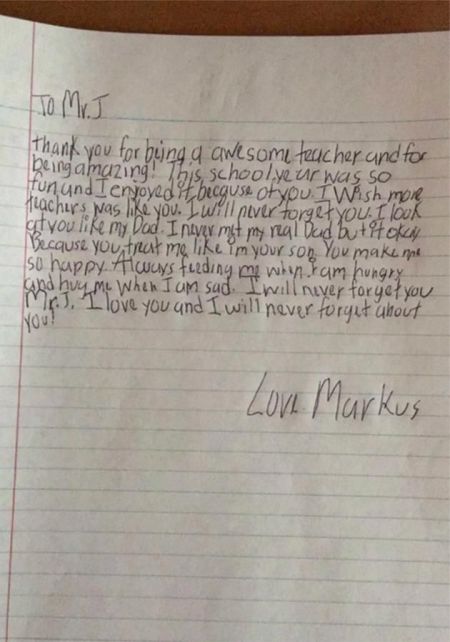 To Mr. J
thank you for being a awesome teacher and for
being amazing! This school year was so
fun and I enjoyed it because of you. I wish more
teachers was like you. I will never forget you. I look
at you like my Dad. I never met my real Dad but it okay
Because you treat me like i'm your son. You make me
so happy. Always feeding me when I am hungry
and hug me when I am sad. I will never forget you
Mr. J. I love you and I will never forget about
you!
Love Markus